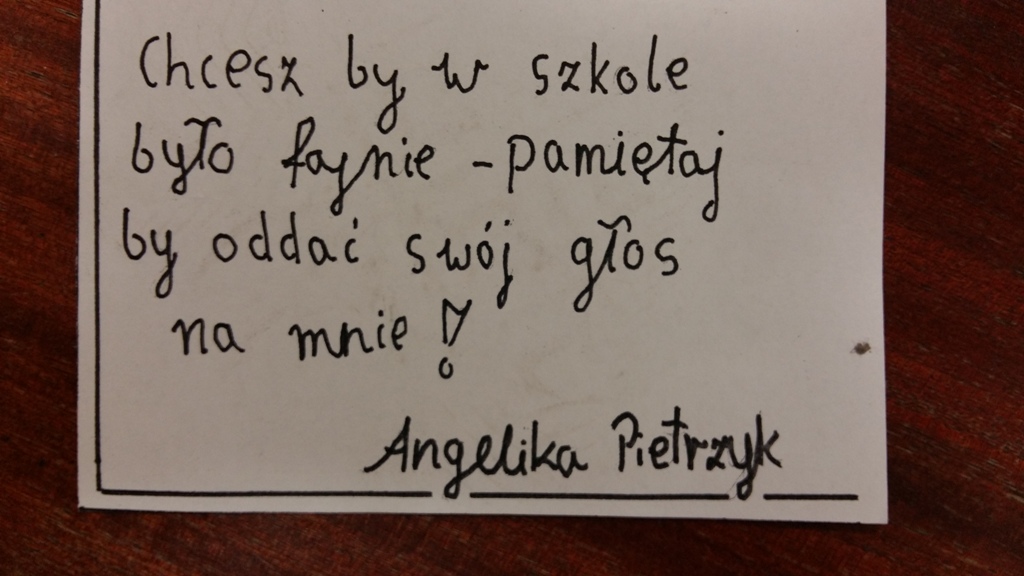 Chcesz by w szkole
było fajnie - pamiętaj
by oddać swój głos
na mnie!
Angelika Pietrzyk